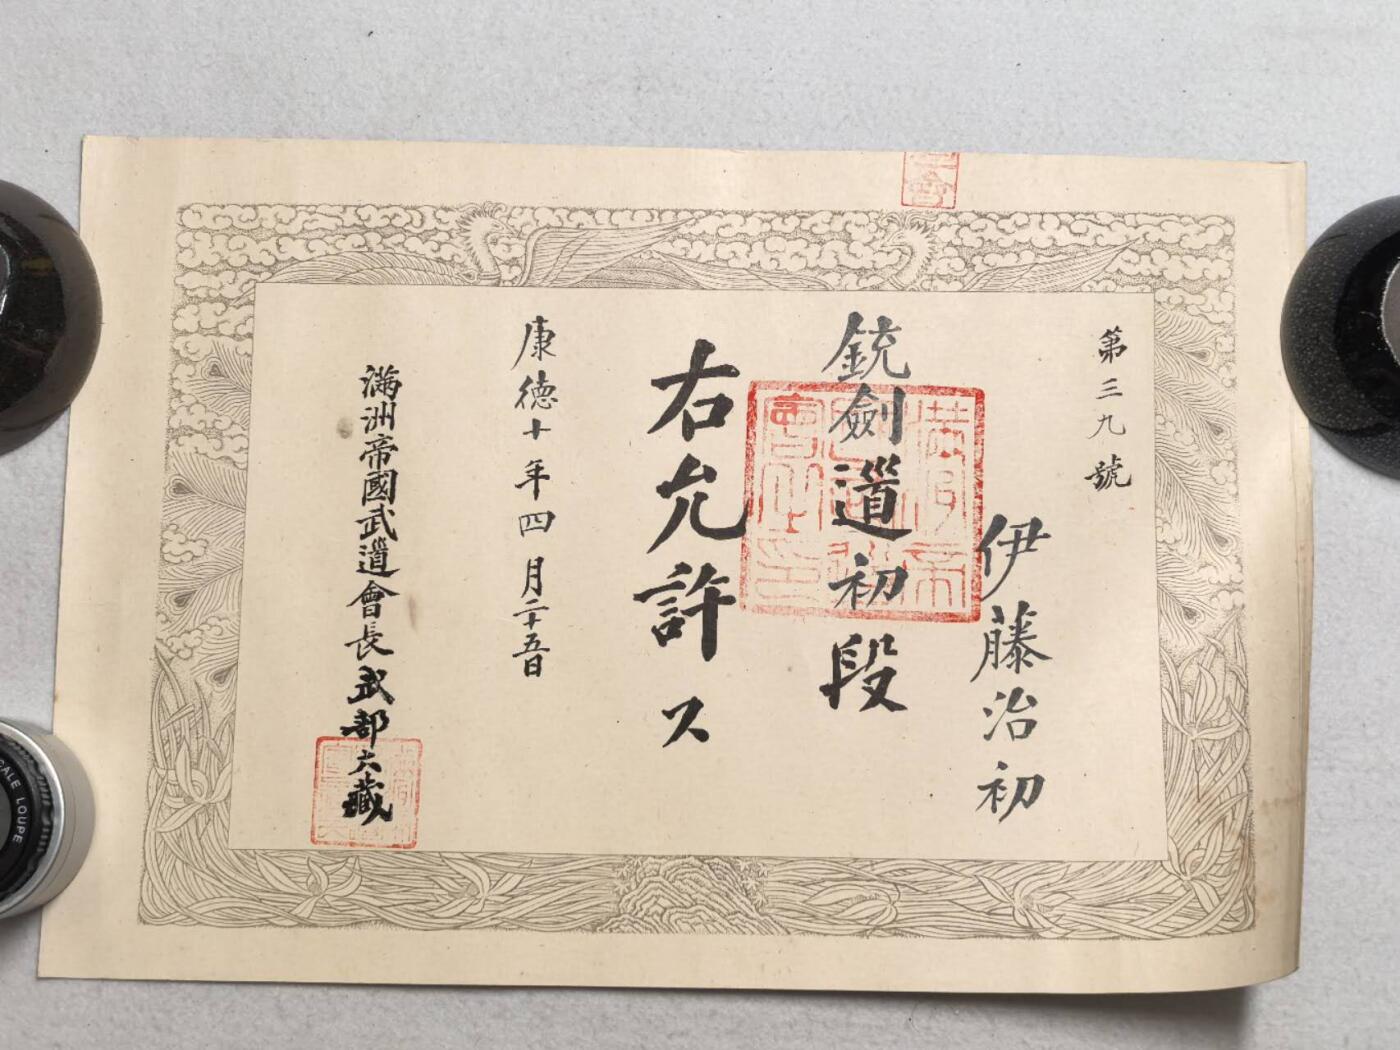 第三九號
伊藤治初
銃劍道初段
右允許ス
康德十年四月二十五日
滿洲帝國武道會長武部六藏
滿洲帝國武道會之印
SCALE LOUPE